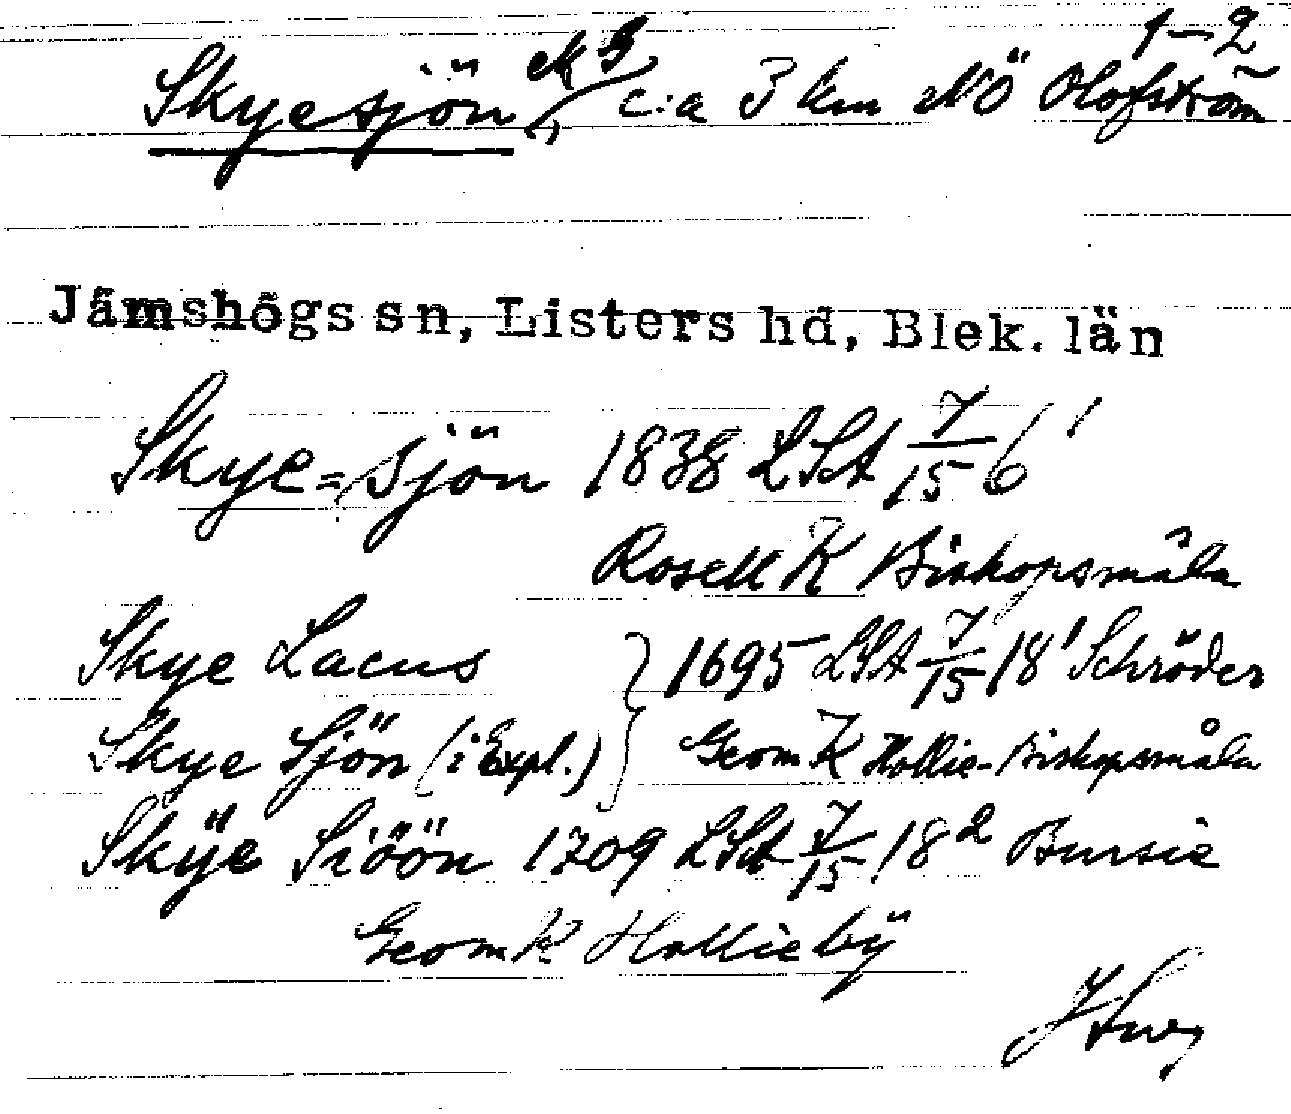 1–2
Skyesjön, c:a 3 km NÖ Olofström
Jämshögs sn, Listers hd, Blek. län
Skye=sjön 1838 LSA 7/15 6¹
Rosell K Biskopsmåla
Skye Lacus } 1695 LSA 7/15 18¹ Schröder
Skye Sjön (i Expl.) } Geom K Hollie-Biskopsmåla
Skÿe Siöön 1709 LSA 7/15 18² Bursie
Geom K Hollie bÿ